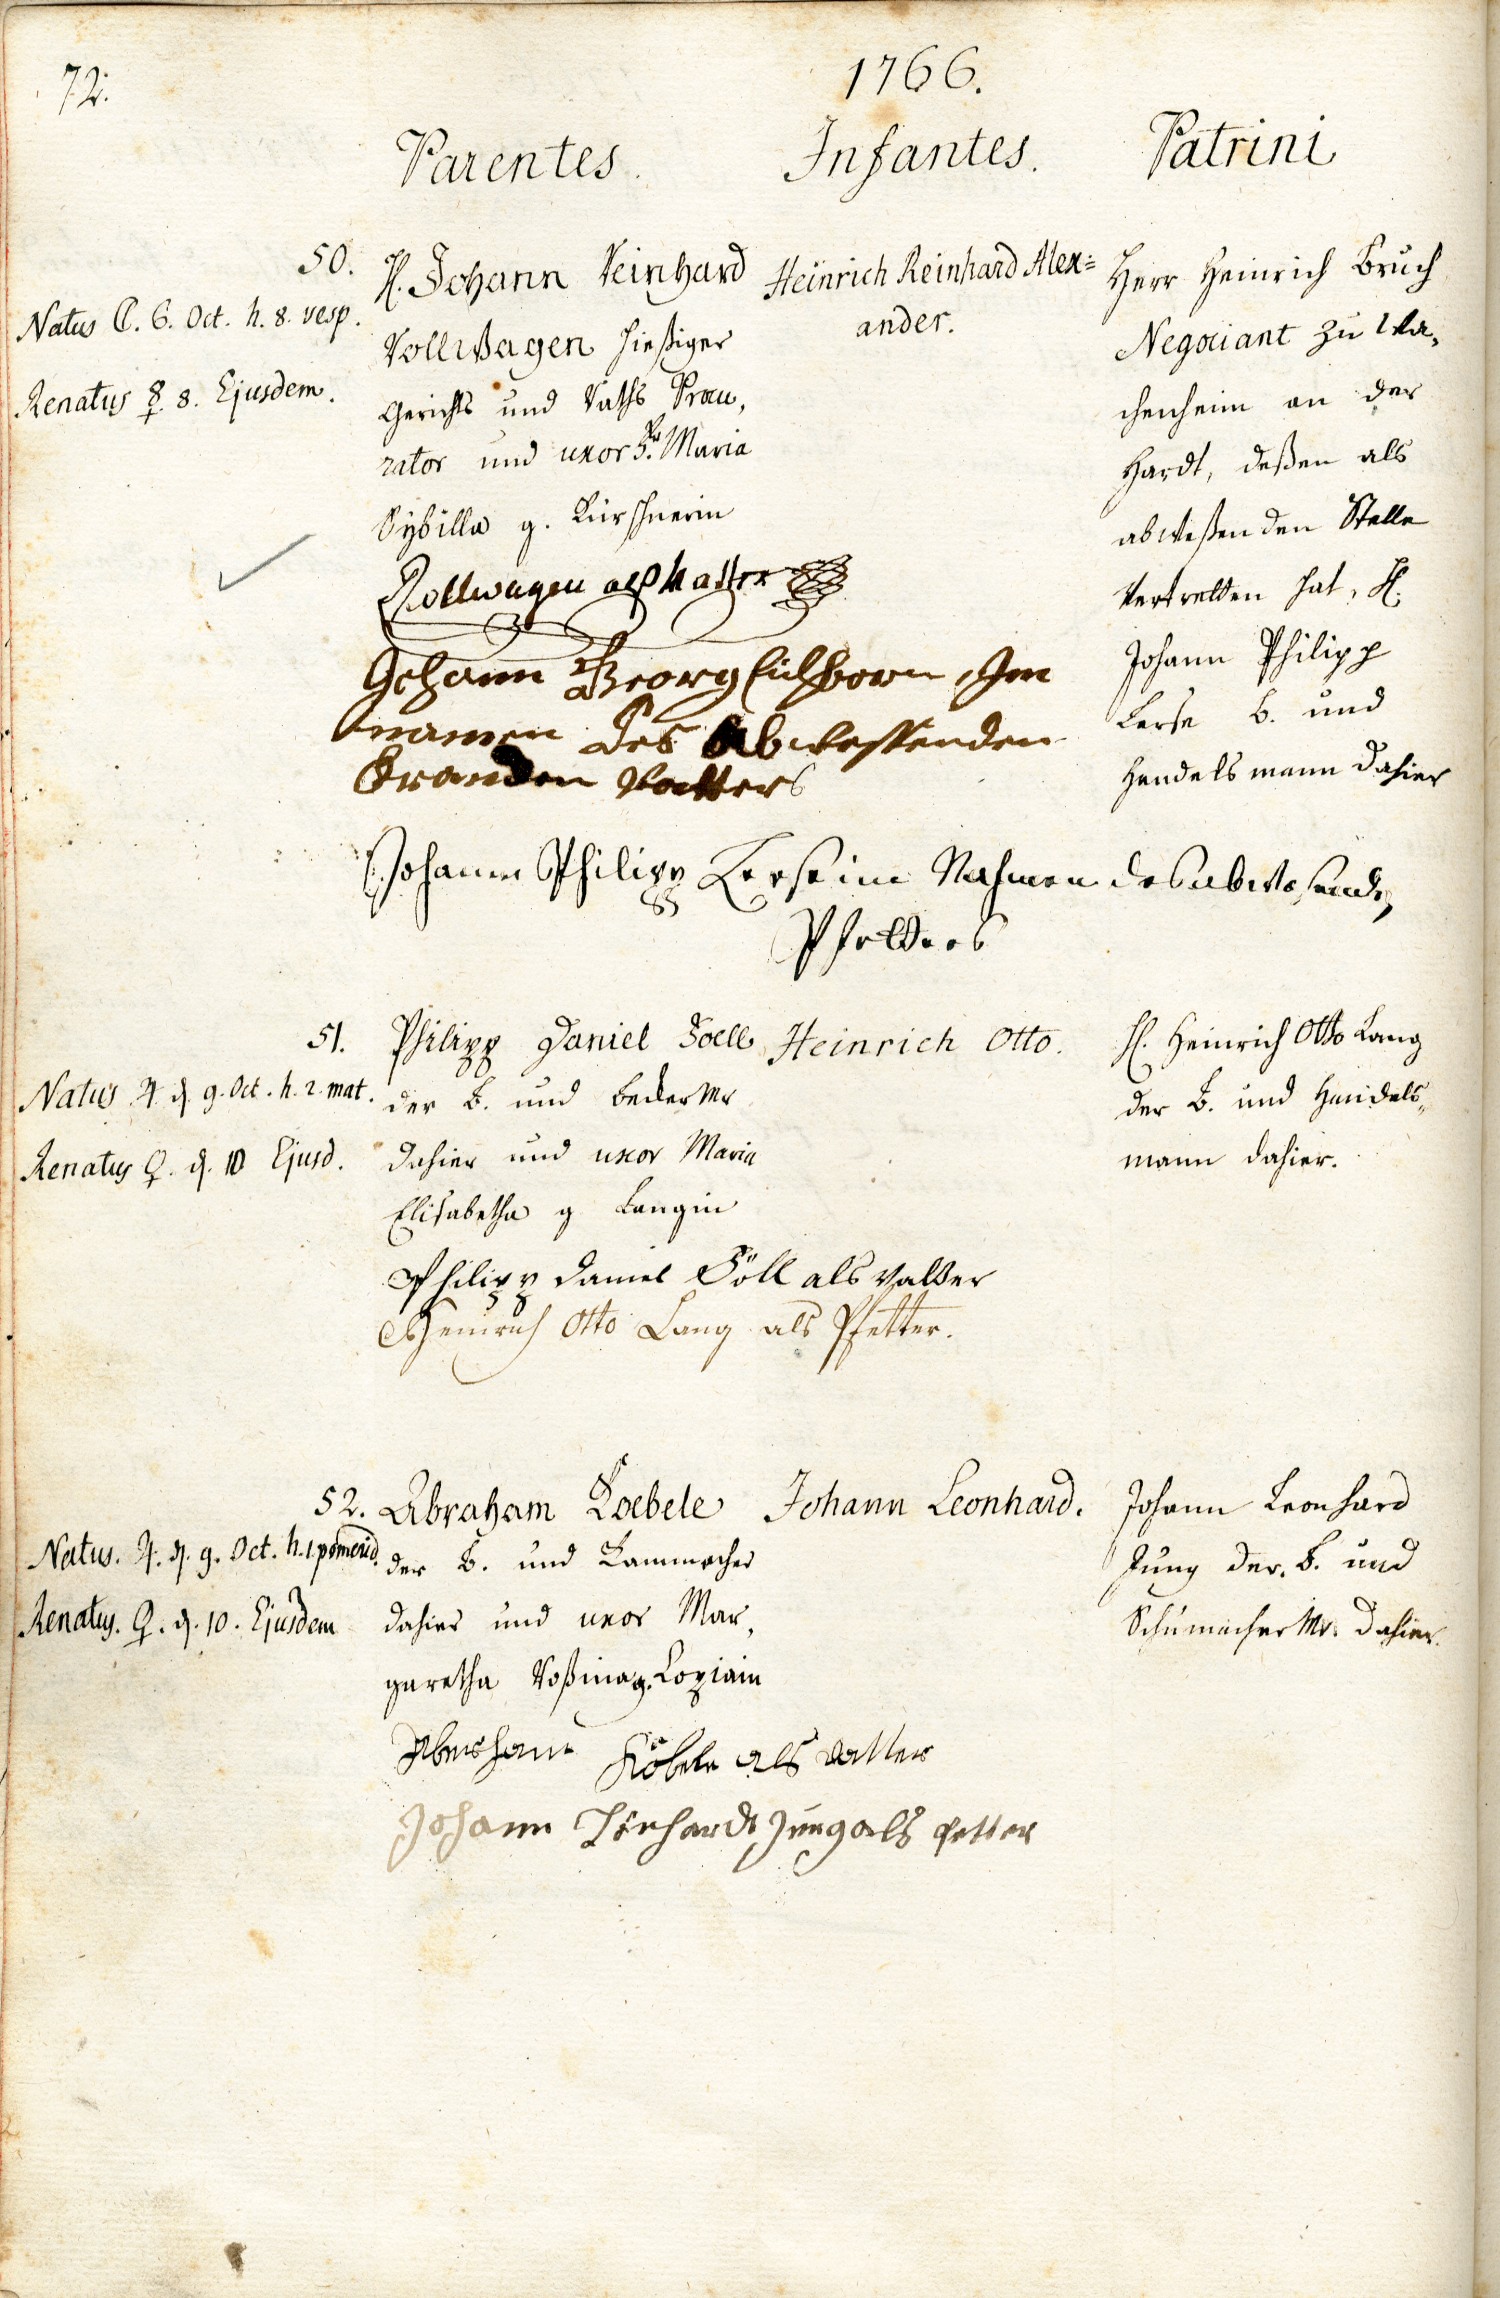 72.
1766.
Parentes.
Infantes.
Patrini
50.
Natus ☾. 6. Oct. h. 8. vesp.
Renatus ☿. 8. Ejusdem.
H. Johann Reinhard
Rollwagen hießiger
Gerichts und Raths Procu,
rator und uxor Fr. Maria
Sybilla g. Kürschnerin
Rollwagen alß Vatter
Johann Georg Eichhorn, Im
namen des Abwessenden
Vatters
Johann Philipp Lerse im Nahmen des abwesenden
Pfetters
Heinrich Reinhard Alex=
ander.
Herr Heinrich Bruch
Negociant zu Wa,
chenheim an der
Hardt, deßen als
abweßenden Stelle
Vertretten hat, H.
Johann Philipp
Lerse b. und
Handelsmann dahier
51.
Natus ♃ d. 9. Oct. h. 2. mat.
Renatus ♀. d. 10 Ejusd.
Philipp Daniel Soell
der B. und Becker Mr
dahier und uxor Maria
Elisabetha g Langin
Philipp Daniel Söll als Vatter
Heinrich Otto Lang als Pfetter.
Heinrich Otto.
H. Heinrich Otto Lang
der B. und Handels,
mann dahier.
52.
Natus. ♃. d. 9. Oct. h. 1. pomerid.
Renatus. ♀. d. 10. Ejusdem
Abraham Koebele
der B. und Kammacher
dahier und uxor Mar,
garetha Roßina g.
Abraham Köbele als Vatter
Johann Lönhardt Jung als Petter
Johann Leonhard.
Johann Leonhard
Jung der. B. und
Schumacher Mr. dahier.